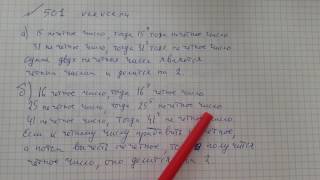 № 501
а) 15 нечетное число, тогда 15⁹ тоже нечетное число
31 нечетное число, тогда 31⁸ тоже нечетное число
Сумма двух нечетных чисел является
четным числом и делится на 2.
б) 16 четное число, тогда 16⁹ четное число
25 нечетное число, тогда 25⁵ нечетное число
41 нечетное число, тогда 41⁹ нечетное число.
Если к четному числу прибавить нечетное,
а потом вычесть нечетное, то получится
четное число, оно делится на 2